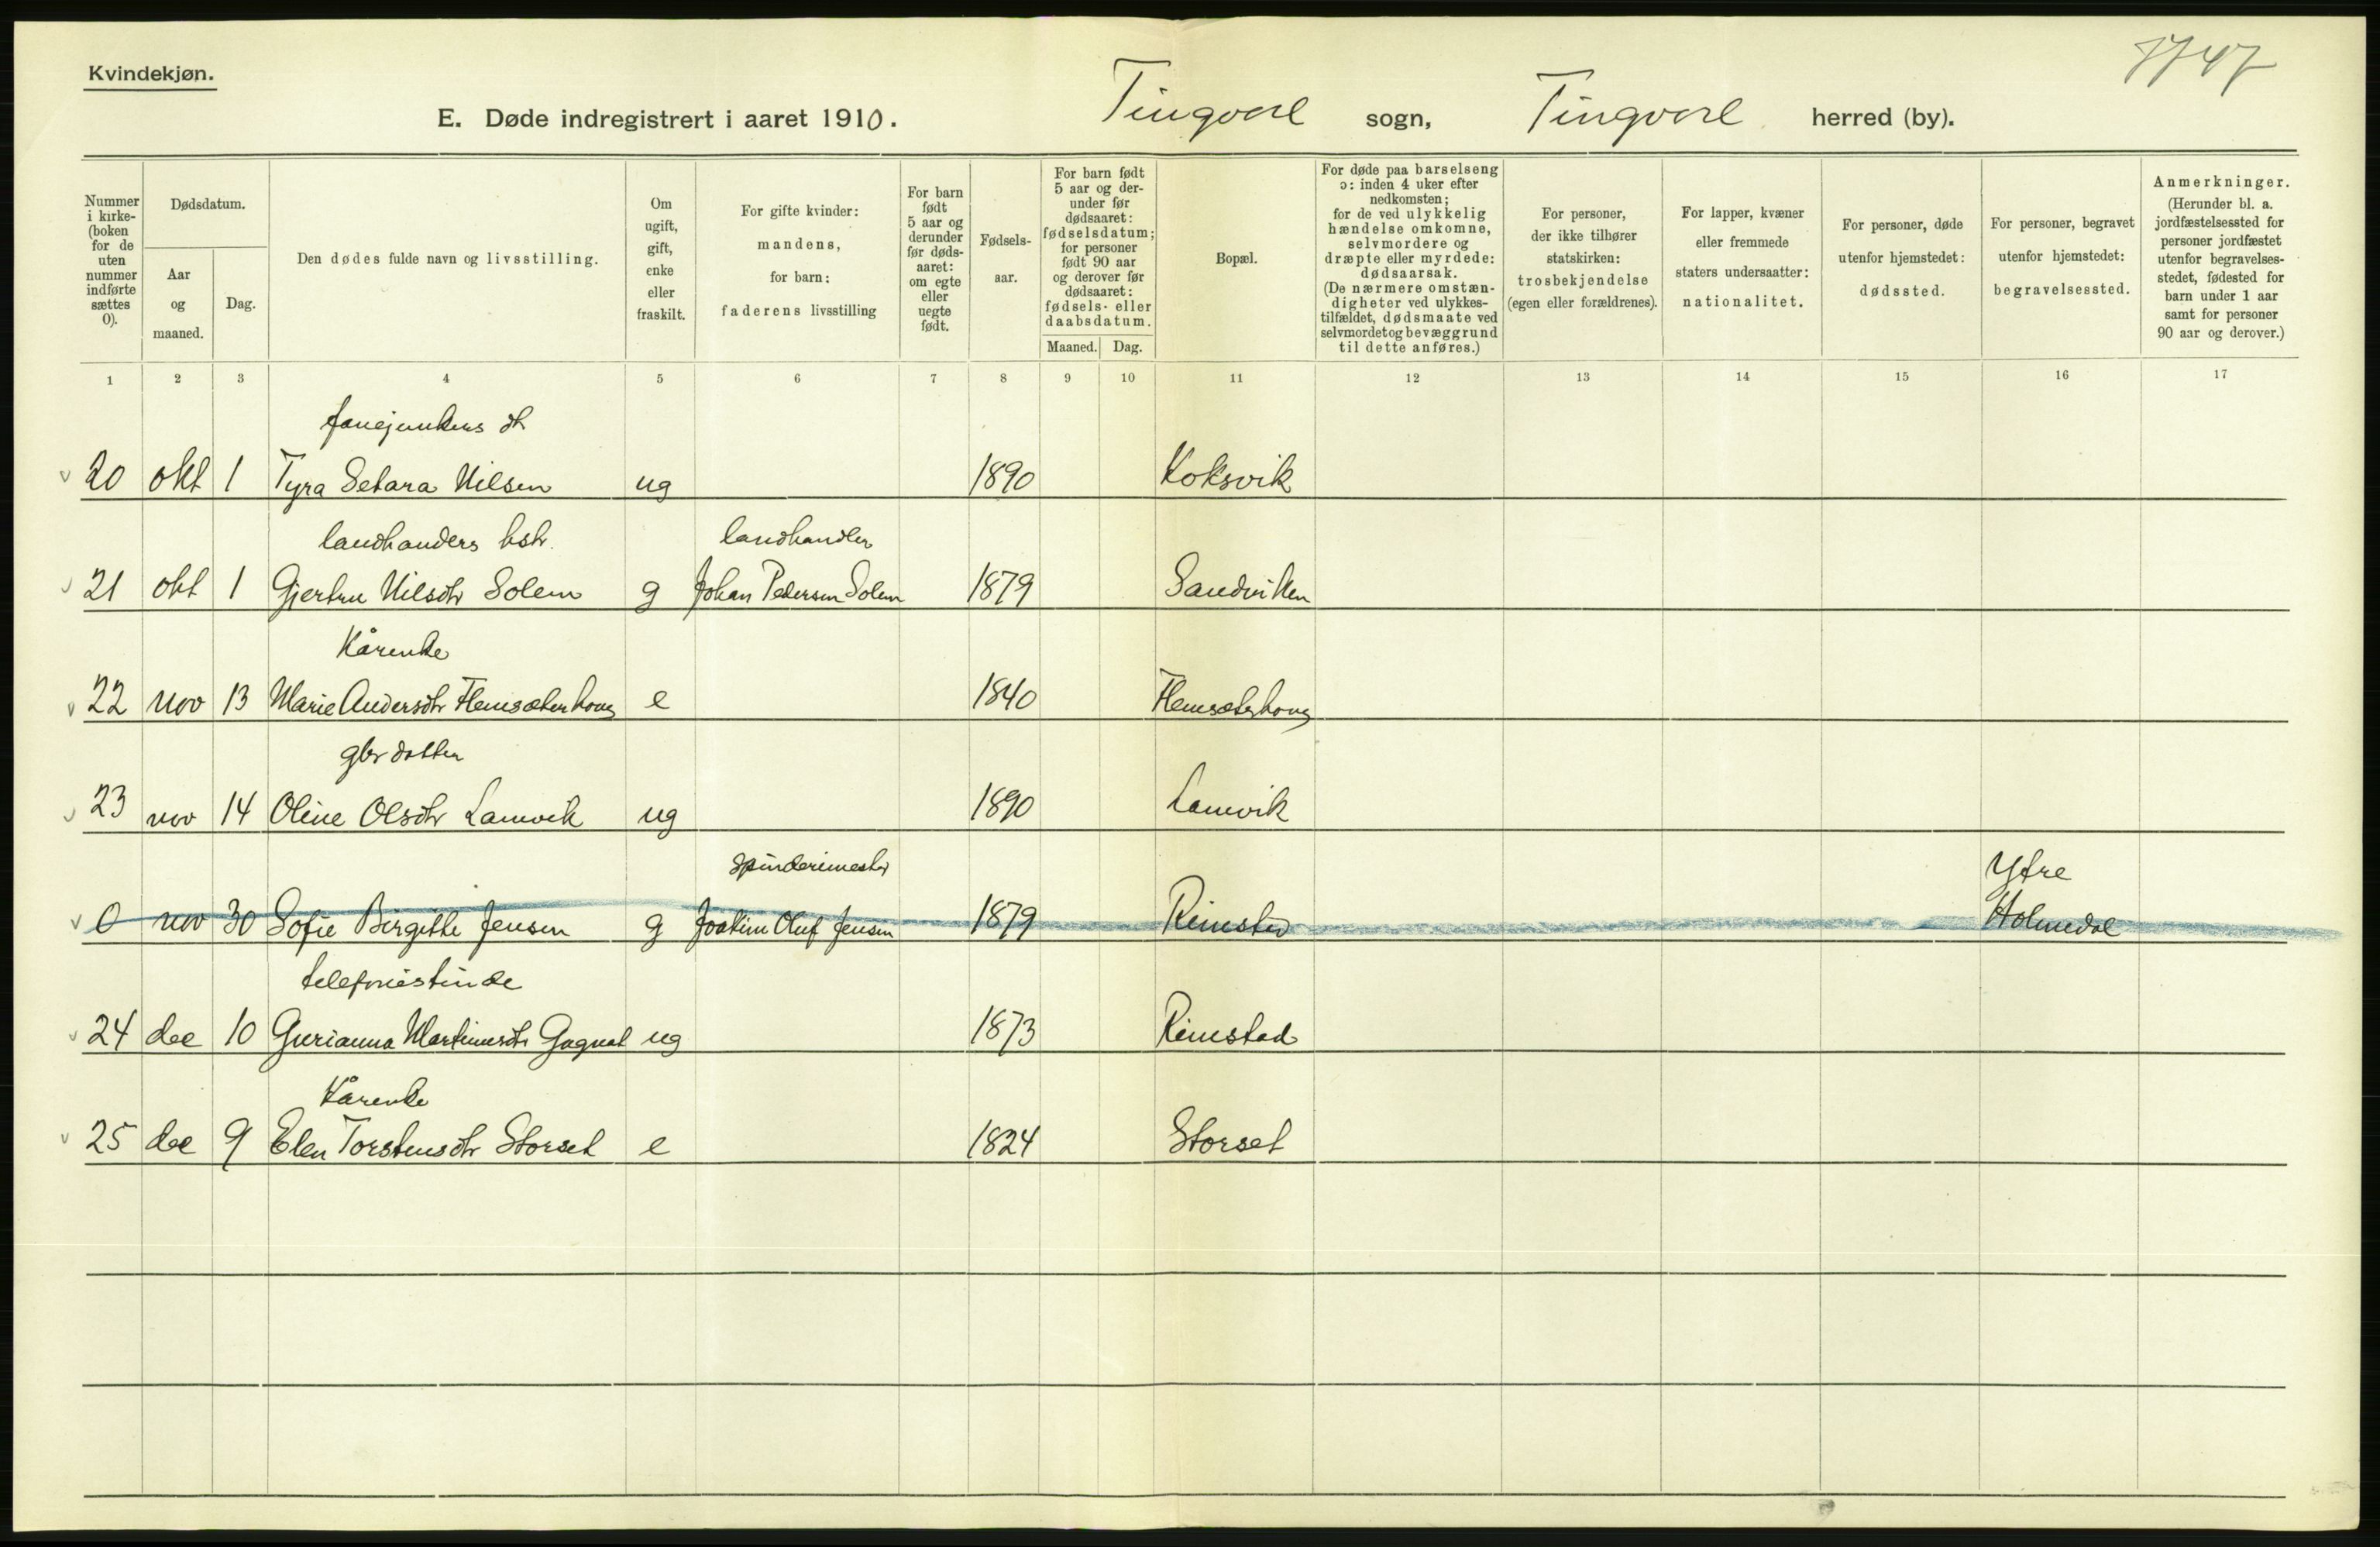 Kvindekjøn.
7747
E. Døde indregistrert i aaret 1910. Tingvoll sogn, Tingvoll herred (by).
Nummer i kirkeboken for de uten nummer indførte sættes 0).
Dødsdatum.
Aar og maaned.
Dag.
Den dødes fulde navn og livsstilling.
Om ugift, gift, enke eller fraskilt.
For gifte kvinder: mandens, for barn: faderens livsstilling
For barn født 5 aar og derunder før dødsaaret: om egte eller uegte født.
Fødselsaar.
For barn født 5 aar og derunder før dødsaaret: fødselsdatum; for personer født 90 aar og derover før dødsaaret: fødsels- eller daabsdatum.
Maaned. Dag.
Bopæl.
For døde paa barselseng ɔ: inden 4 uker efter nedkomsten; for de ved ulykkelig hændelse omkomne, selvmordere og dræpte eller myrdede: dødsaarsak. (De nærmere omstændigheter ved ulykkestilfældet, dødsmaate ved selvmordet og bevæggrund til dette anføres.)
For personer, der ikke tilhører statskirken: trosbekjendelse (egen eller forældrenes).
For lapper, kvæner eller fremmede staters undersaatter: nationalitet.
For personer, døde utenfor hjemstedet: dødssted.
For personer, begravet utenfor hjemstedet: begravelsessted.
Anmerkninger. (Herunder bl. a. jordfæstelsessted for personer jordfæstet utenfor begravelsesstedet, fødested for barn under 1 aar samt for personer 90 aar og derover.)
1 2 3 4 5 6 7 8 9 10 11 12 13 14 15 16 17
fanejunkers dt
20 okt 1 Tyra Setara Nilsen ug 1890 Koksvik
landhanders hstr. landhandler
21 okt 1 Gjertru Nilsdtr Solem g Johan Pedersen Solem 1879 Sandviken
Kårenke
22 nov 13 Marie Andersdtr Flemsæterhaug e 1840 Flemsæterhaug
gbr datter
23 nov 14 Oline Olsdtr Lamvik ug 1890 Lamvik
spinderimester Ytre
0 nov 30 Sofie Birgitte Jensen g Joakim Oluf Jensen 1879 Rimstad Holmedal
telefonistinde
24 dec 10 Gurianna Martinusdtr Gagnat ug 1873 Rimstad
Kårenke
25 dec 9 Elen Torstensdtr Storset e 1824 Storset